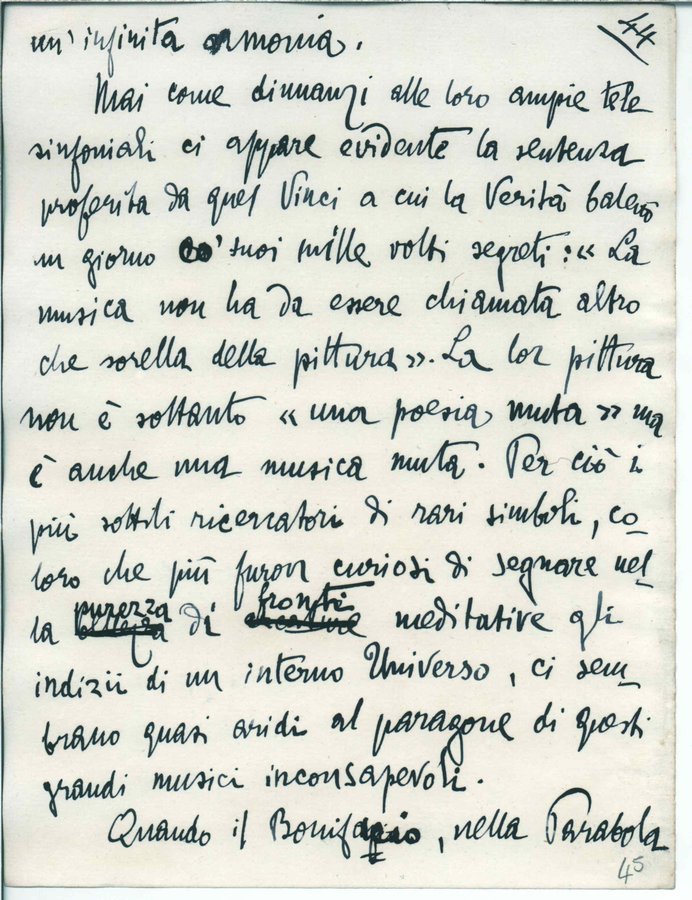 44
un' infinita armonia.
Mai come dinnanzi alle loro ampie tele
sinfoniali ci appare evidente la sentenza
proferita da quel Vinci a cui la Verità balenò
un giorno co' suoi mille volti segreti: « La
musica non ha da essere chiamata altro
che sorella della pittura ». La lor pittura
non è soltanto « una poesia muta » ma
è anche una musica muta. Per ciò i
più sottili ricercatori di rari simboli, co-
loro che più furon curiosi di segnare nel-
la purezza di fronti meditative gli
indizii di un interno Universo, ci sem-
brano quasi aridi al paragone di questi
grandi musici inconsapevoli.
Quando il Bonifazio, nella Parabola
45